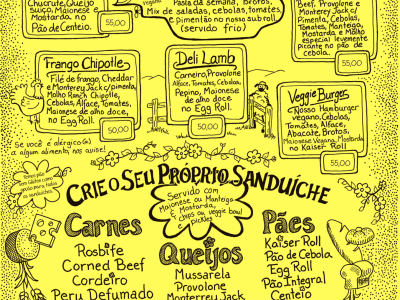 Chucrute, Queijo
Suíço, Maionese e
Mostarda no
Pão de Centeio.
55,00
Pasta da semana, Brotos,
Mix de saladas, cebolas, tomates,
e pimentão no nosso sub roll
(servido frio)
Beef, Provolone e
Monterey Jack c/
Pimenta, Cebolas,
Tomates, Mantega,
Mostarda e Molho
especial levemente
picante no pão de
cebola.
55,00
Frango Chipotle
Filé de frango, Cheddar
e Monterey Jack c/ pimenta,
Molho Ranch Chipotle,
Cebolas, Alface, Tomates,
Maionese
no Egg Roll.
55,00
Deli Lamb
Carneiro, Provolone
Alface, Tomates, Cebolas,
Pepino, Maionese
de alho doce
no Egg Roll.
50,00
Veggie Burger
Nosso Hamburger
vegano, Cebolas,
Tomates, Alface,
Abacate, Brotos,
Maionese Vegana, Mostarda
no Kaiser Roll
55,00
Se você é alérgico(a)
a algum alimento, nos avise!
Crie o Seu Próprio Sanduíche
Servido com
Maionese ou Mantega
e Mostarda,
e chips ou veggie bowl
e pickles
Carnes
Rosbife
Corned Beef
Cordeiro
Peru Defumado
Queijos
Mussarela
Provolone
Monterrey Jack
Pães
Kaiser Roll
Pão de Cebola
Egg Roll
Pão Integral
Centeio